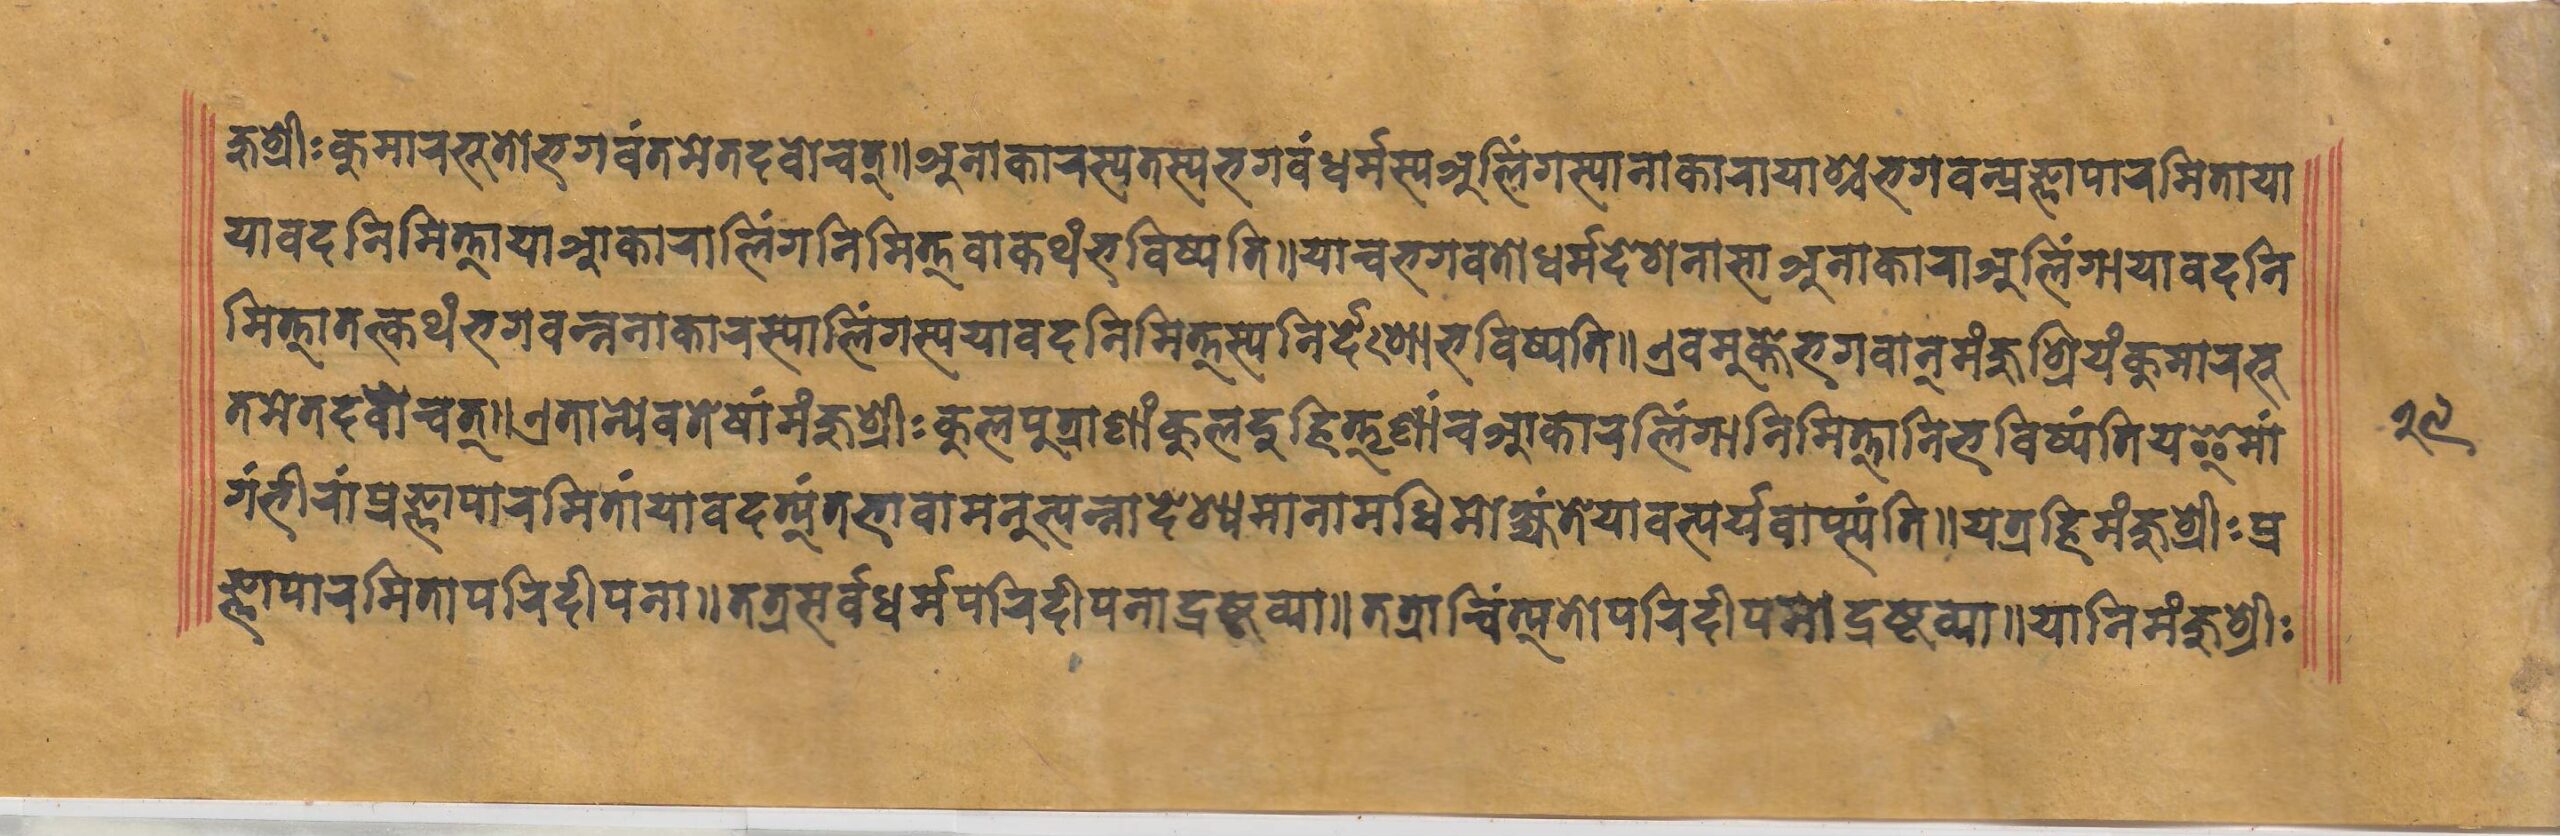 ञ्जुश्रीःकुमारभूतोभगवंतमेतदवोचत्॥अनाकारस्यतस्यभगवंधर्मस्यअलिंगस्यानाकारायाश्चभगवन्प्रज्ञापारमिताया
यावदनिमित्तायाआकारालिंगनिमित्तवाकथंभविष्यति॥याचभगवतोधर्मदेशेनासाअनाकाराअलिंगायावदनि
मित्तातत्कथंभगवन्ननाकारस्यालिंगस्ययावदनिमित्तस्यनिर्देशोभविष्यति॥एवमुक्तेभगवान्मंजुश्रियंकुमारभू
तमेतदवोचत्॥एतान्येवतेषांमंजुश्रीःकुलपुत्राणांकुलदुहितॄणांचआकारलिंगानिमित्तानिभविष्यंतियइमां
गंभीरांप्रज्ञापारमितांयावदत्यंतभावामनुत्पन्नादेश्यमानामधिमोक्ष्यंतेयावत्पर्यवाप्स्यंति॥यत्रहिमंजुश्रीःप्र
ज्ञापारमितापरिदीपना॥तत्रसर्वधर्मपरिदीपनाद्रष्टव्या॥तत्राचिंत्यतोपरिदीपनाद्रष्टव्या॥यानिमंजुश्रीः
२९